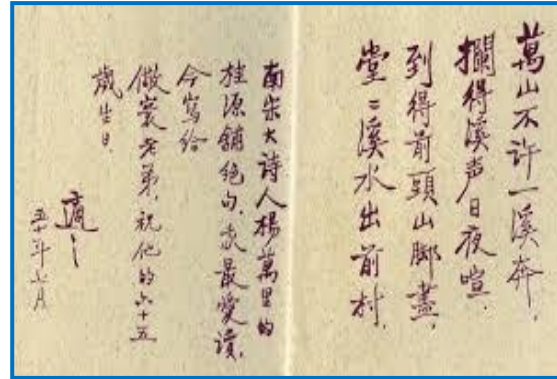 萬山不许一溪奔，
攔得溪声日夜喧．
到得前頭山脚盡，
堂〻溪水出前村．
南宋大诗人楊萬里的
桂源舖绝句，我最愛讀，
今寫给
儆寰老弟，祝他的六十五
歲生日．
適之
五十年六月